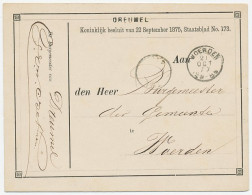 DREUMEL
Koninklijk besluit van 22 September 1875, Staatsblad No. 173.
De Burgemeester van
Dreumel
Aan
WOERDEN
OCT
den Heer Burgemeester
der Gemeente
Woerden